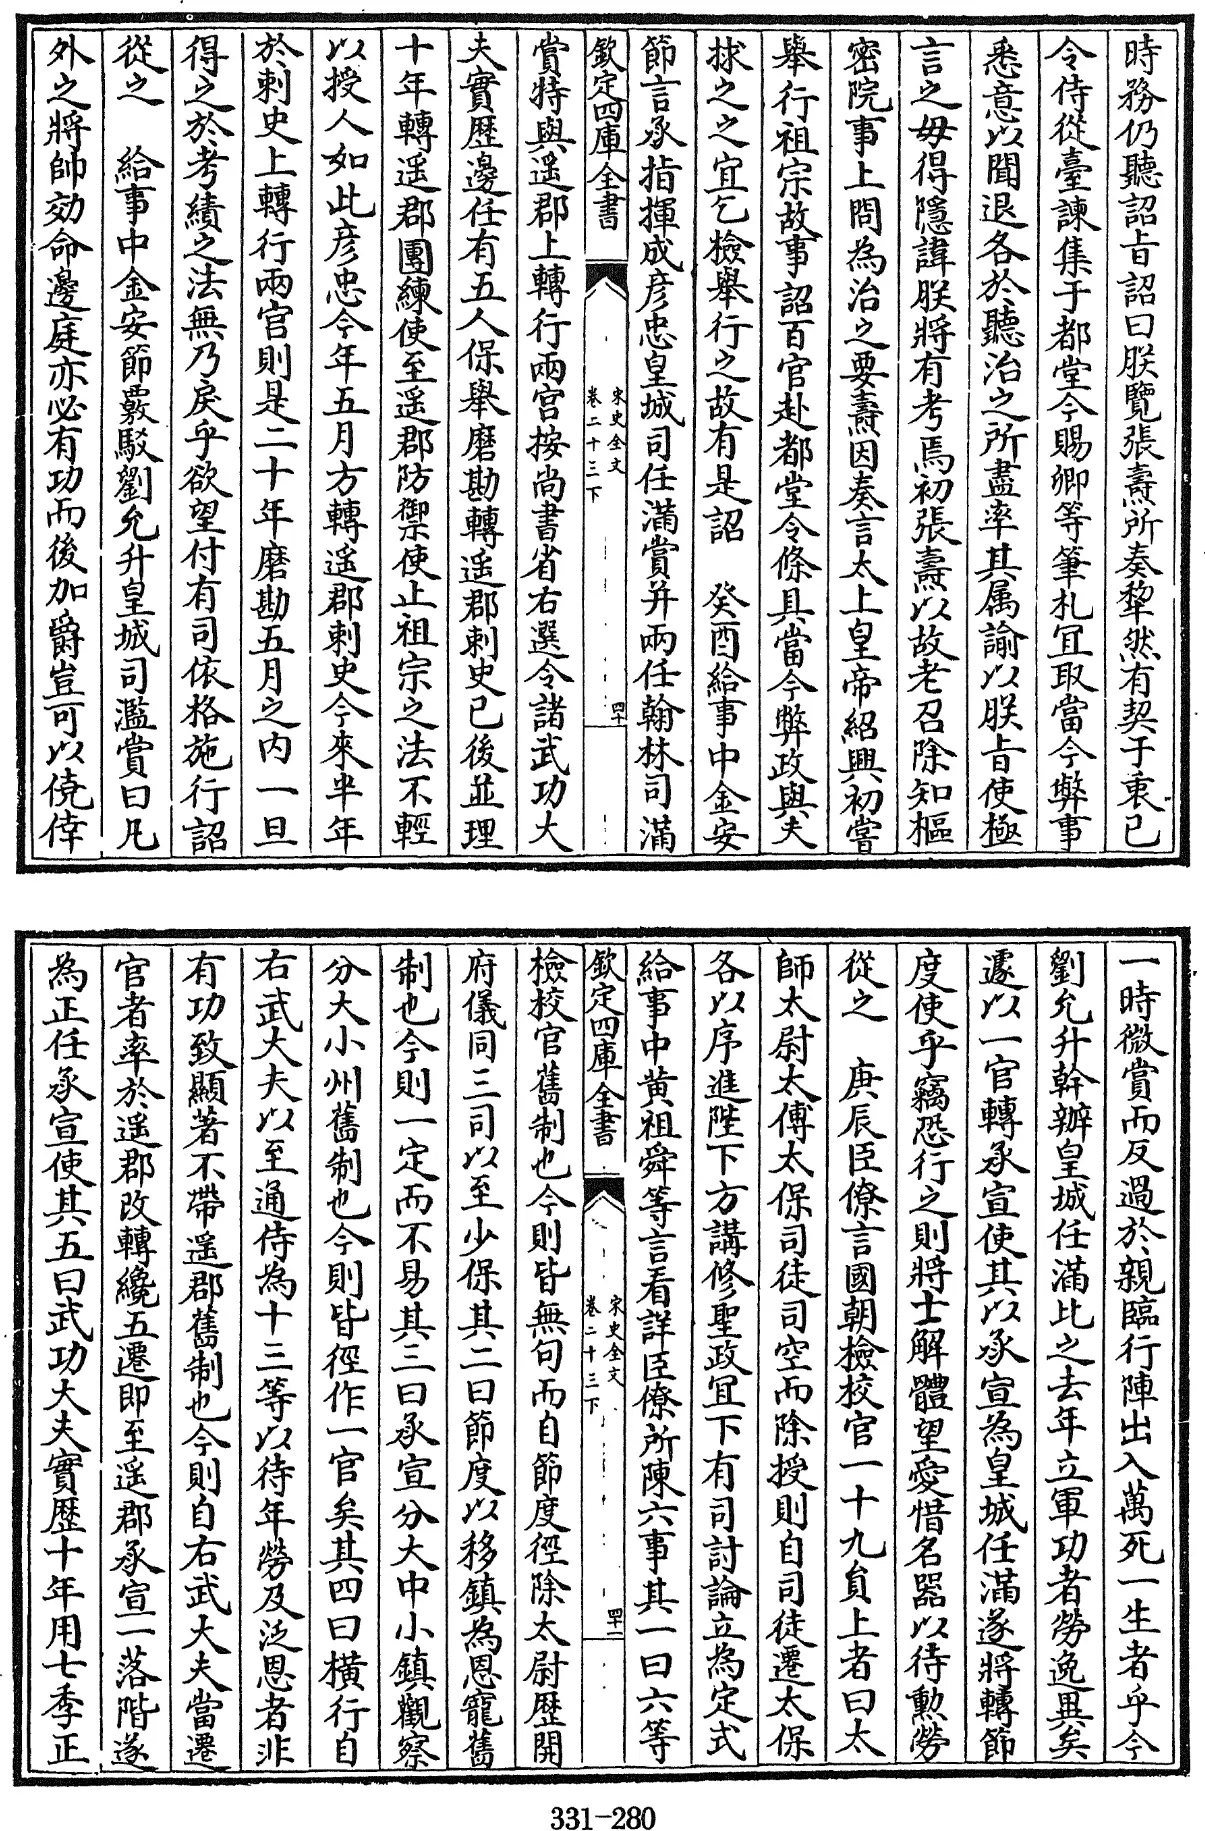 時務仍聽詔旨詔曰朕覽張燾所奏犂然有契于衷已
令侍從臺諫集于都堂今賜卿等筆札冝取當今弊事
悉意以聞退各於聽治之所盡率其属諭以朕旨使極
言之毋得隠諱朕將有考焉初張燾以故老召除知樞
密院事上問為治之要燾因奏言太上皇帝紹興初嘗
舉行祖宗故事詔百官赴都堂令條具當今弊政與夫
捄之之宜乞檢舉行之故有是詔　癸酉給事中金安
節言承指揮成彦忠皇城司任滿賞并兩任翰林司滿
欽定四庫全書
宋史全文
卷二十三下
四十
賞特與遥郡上轉行兩官按尚書省右選令諸武功大
夫實歷邊任有五人保舉磨勘轉遥郡刺史已後並理
十年轉遥郡團練使至遥郡防禦使止祖宗之法不輕
以授人如此彦忠今年五月方轉遥郡刺史今來半年
於刺史上轉行兩官則是二十年磨勘五月之内一旦
得之於考績之法無乃戾乎欲望付有司依格施行詔
從之　給事中金安節覆駁劉允升皇城司濫賞曰凡
外之將帥効命邊庭亦必有功而後加爵豈可以僥倖
一時微賞而反過於親臨行陣出入萬死一生者乎今
劉允升幹辦皇城任滿比之去年立軍功者勞逸異矣
遽以一官轉承宣使其以承宣為皇城任滿遂將轉節
度使乎竊恐行之則將士解體望愛惜名器以待勲勞
從之　庚辰臣僚言國朝檢校官一十九貟上者曰太
師太尉太傅太保司徒司空而除授則自司徒遷太保
各以序進陛下方講修聖政冝下有司討論立為定式
給事中黄祖舜等言看詳臣僚所陳六事其一曰六等
欽定四庫全書
宋史全文
卷二十三下
四十一
檢校官舊制也今則皆無句而自節度徑除太尉歷開
府儀同三司以至少保其二曰節度以移鎮為恩寵舊
制也今則一定而不易其三曰承宣分大中小鎮觀察
分大小州舊制也今則皆徑作一官矣其四曰横行自
右武大夫以至通侍為十三等以待年勞及泛恩者非
有功致顯著不帶遥郡舊制也今則自右武大夫當遷
官者率於遥郡改轉纔五遷即至遥郡承宣一落階遂
為正任承宣使其五曰武功大夫實歷十年用七季正
331-280